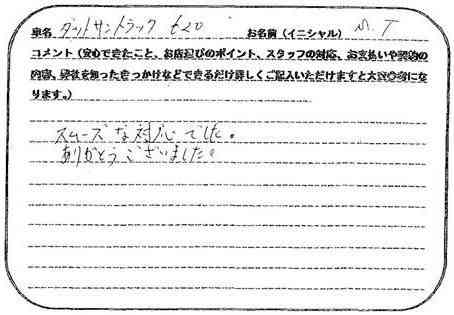 車名 ダットサントラック 620 お名前(イニシャル) M.T
コメント(安心できたこと、お店選びのポイント、スタッフの対応、お支払いや契約の
内容、弊社を知ったきっかけなどできるだけ詳しくご記入いただけますと大変参考にな
ります。)
スムーズな対応でした。
ありがとうございました。